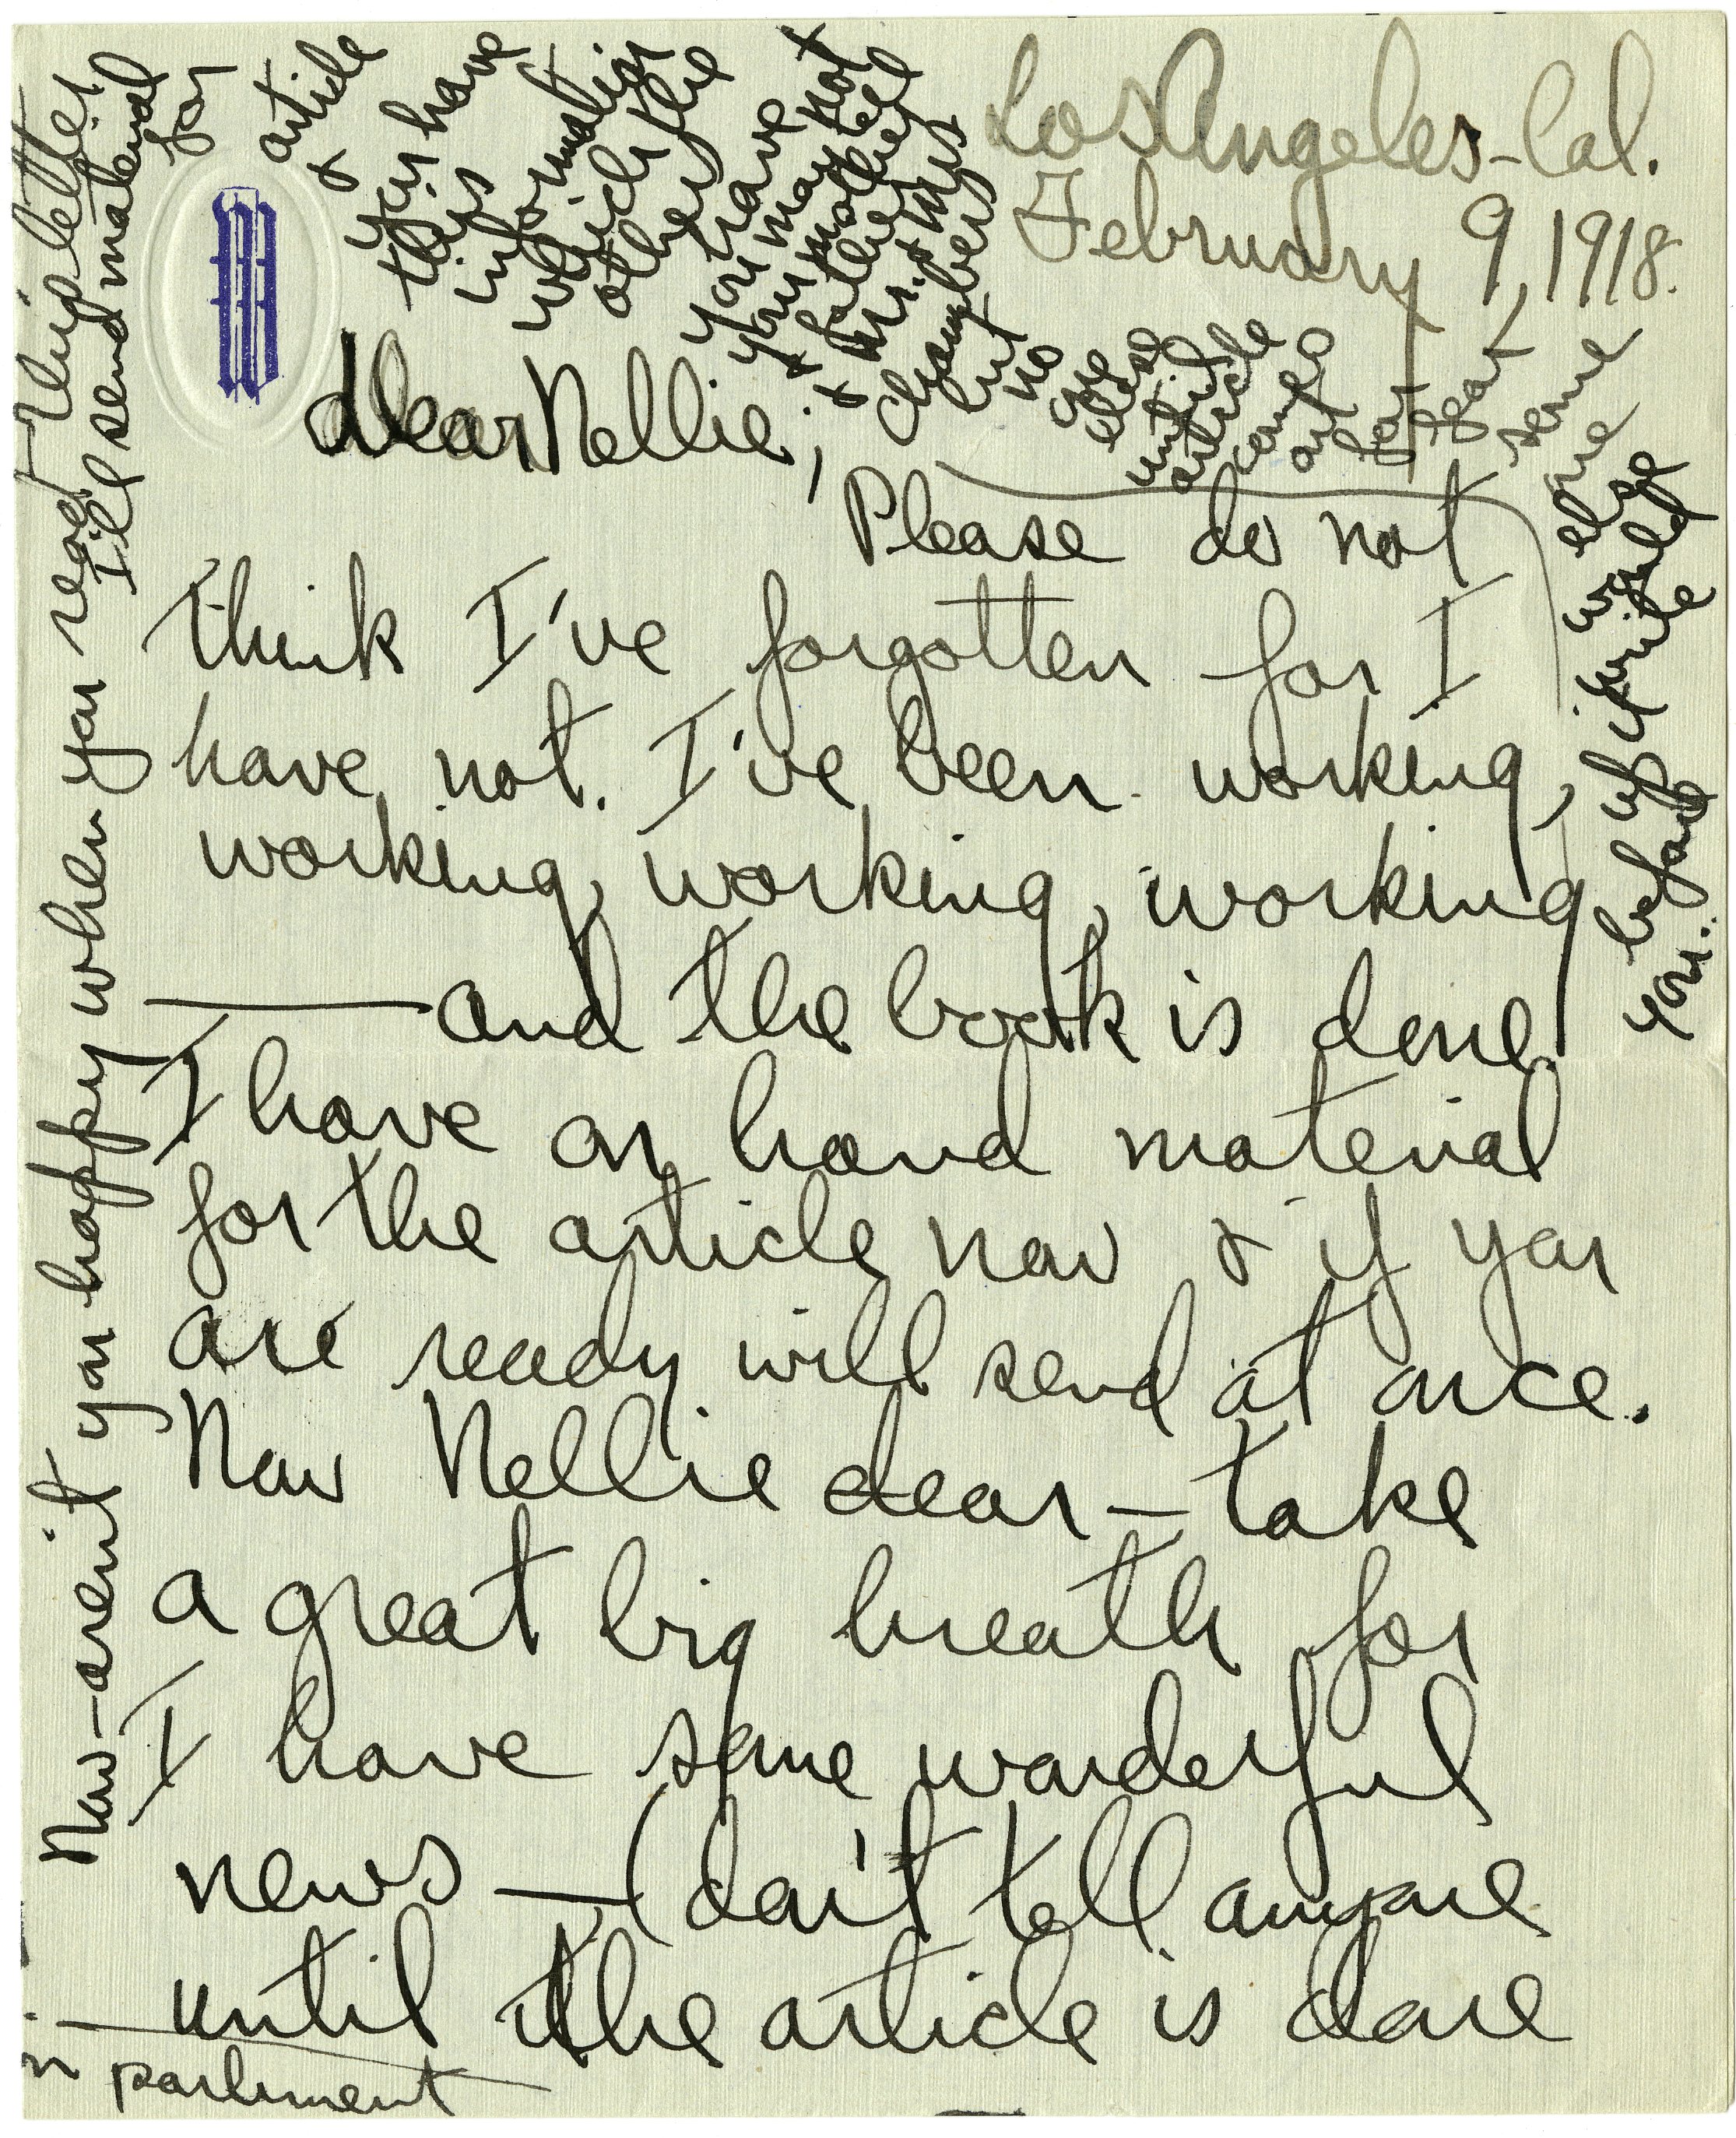 Los Angeles - Cal.
February 9, 1918.
Dear Nellie,
Please do not
think I've forgotten for I
have not. I've been working,
working, working, working
— and the book is done
I have on hand material
for the article now & if you
are ready will send at once.
Now Nellie dear — take
a great big breath for
I have some wonderful
news — (don't tell anyone
until the article is done
parliment
Now - aren't you happy when you read this letter
I'll send material
for
article
&
you have
this
information
which
other
have
you may not
you may tell
your mother
& father
& Mr. & Mrs
Chambers
but
no
one
else
until
article
comes
out
for
fear
some
one
else
would
write
it up
before
you.